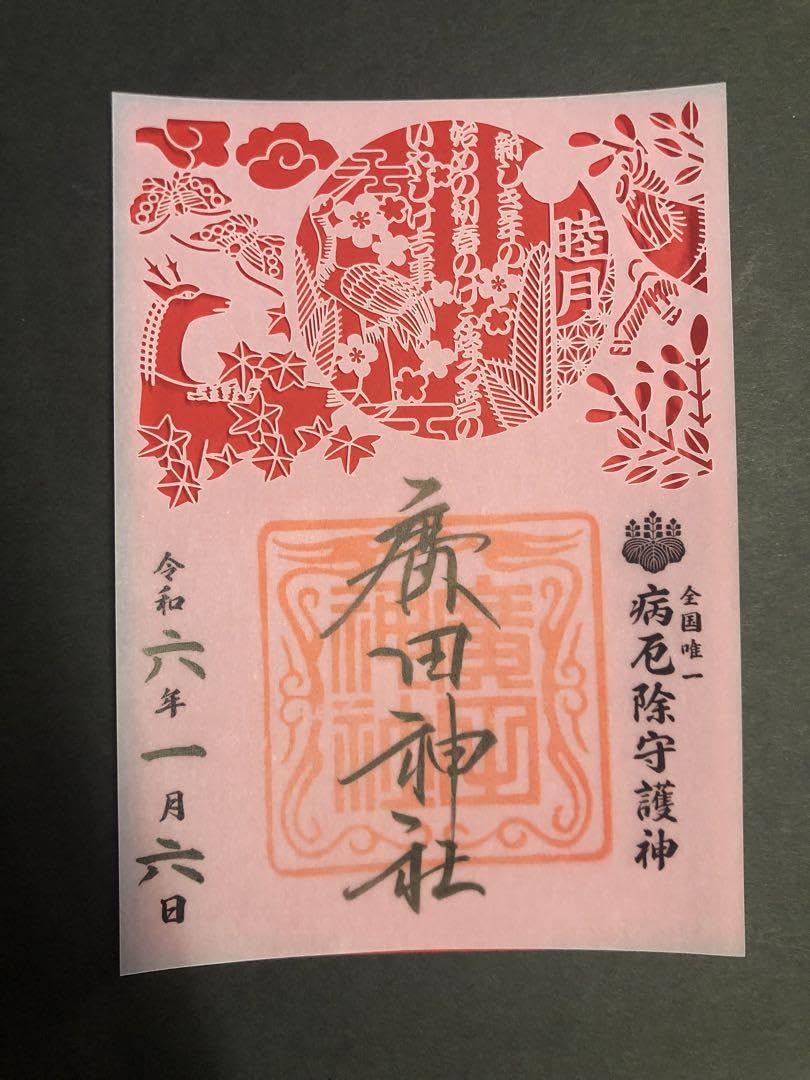 睦月
新しき年の
始めの初春のけふ降る雪の
いやしけ吉事
全国唯一
病厄除守護神
廣田神社
廣田
神社
令和六年一月六日